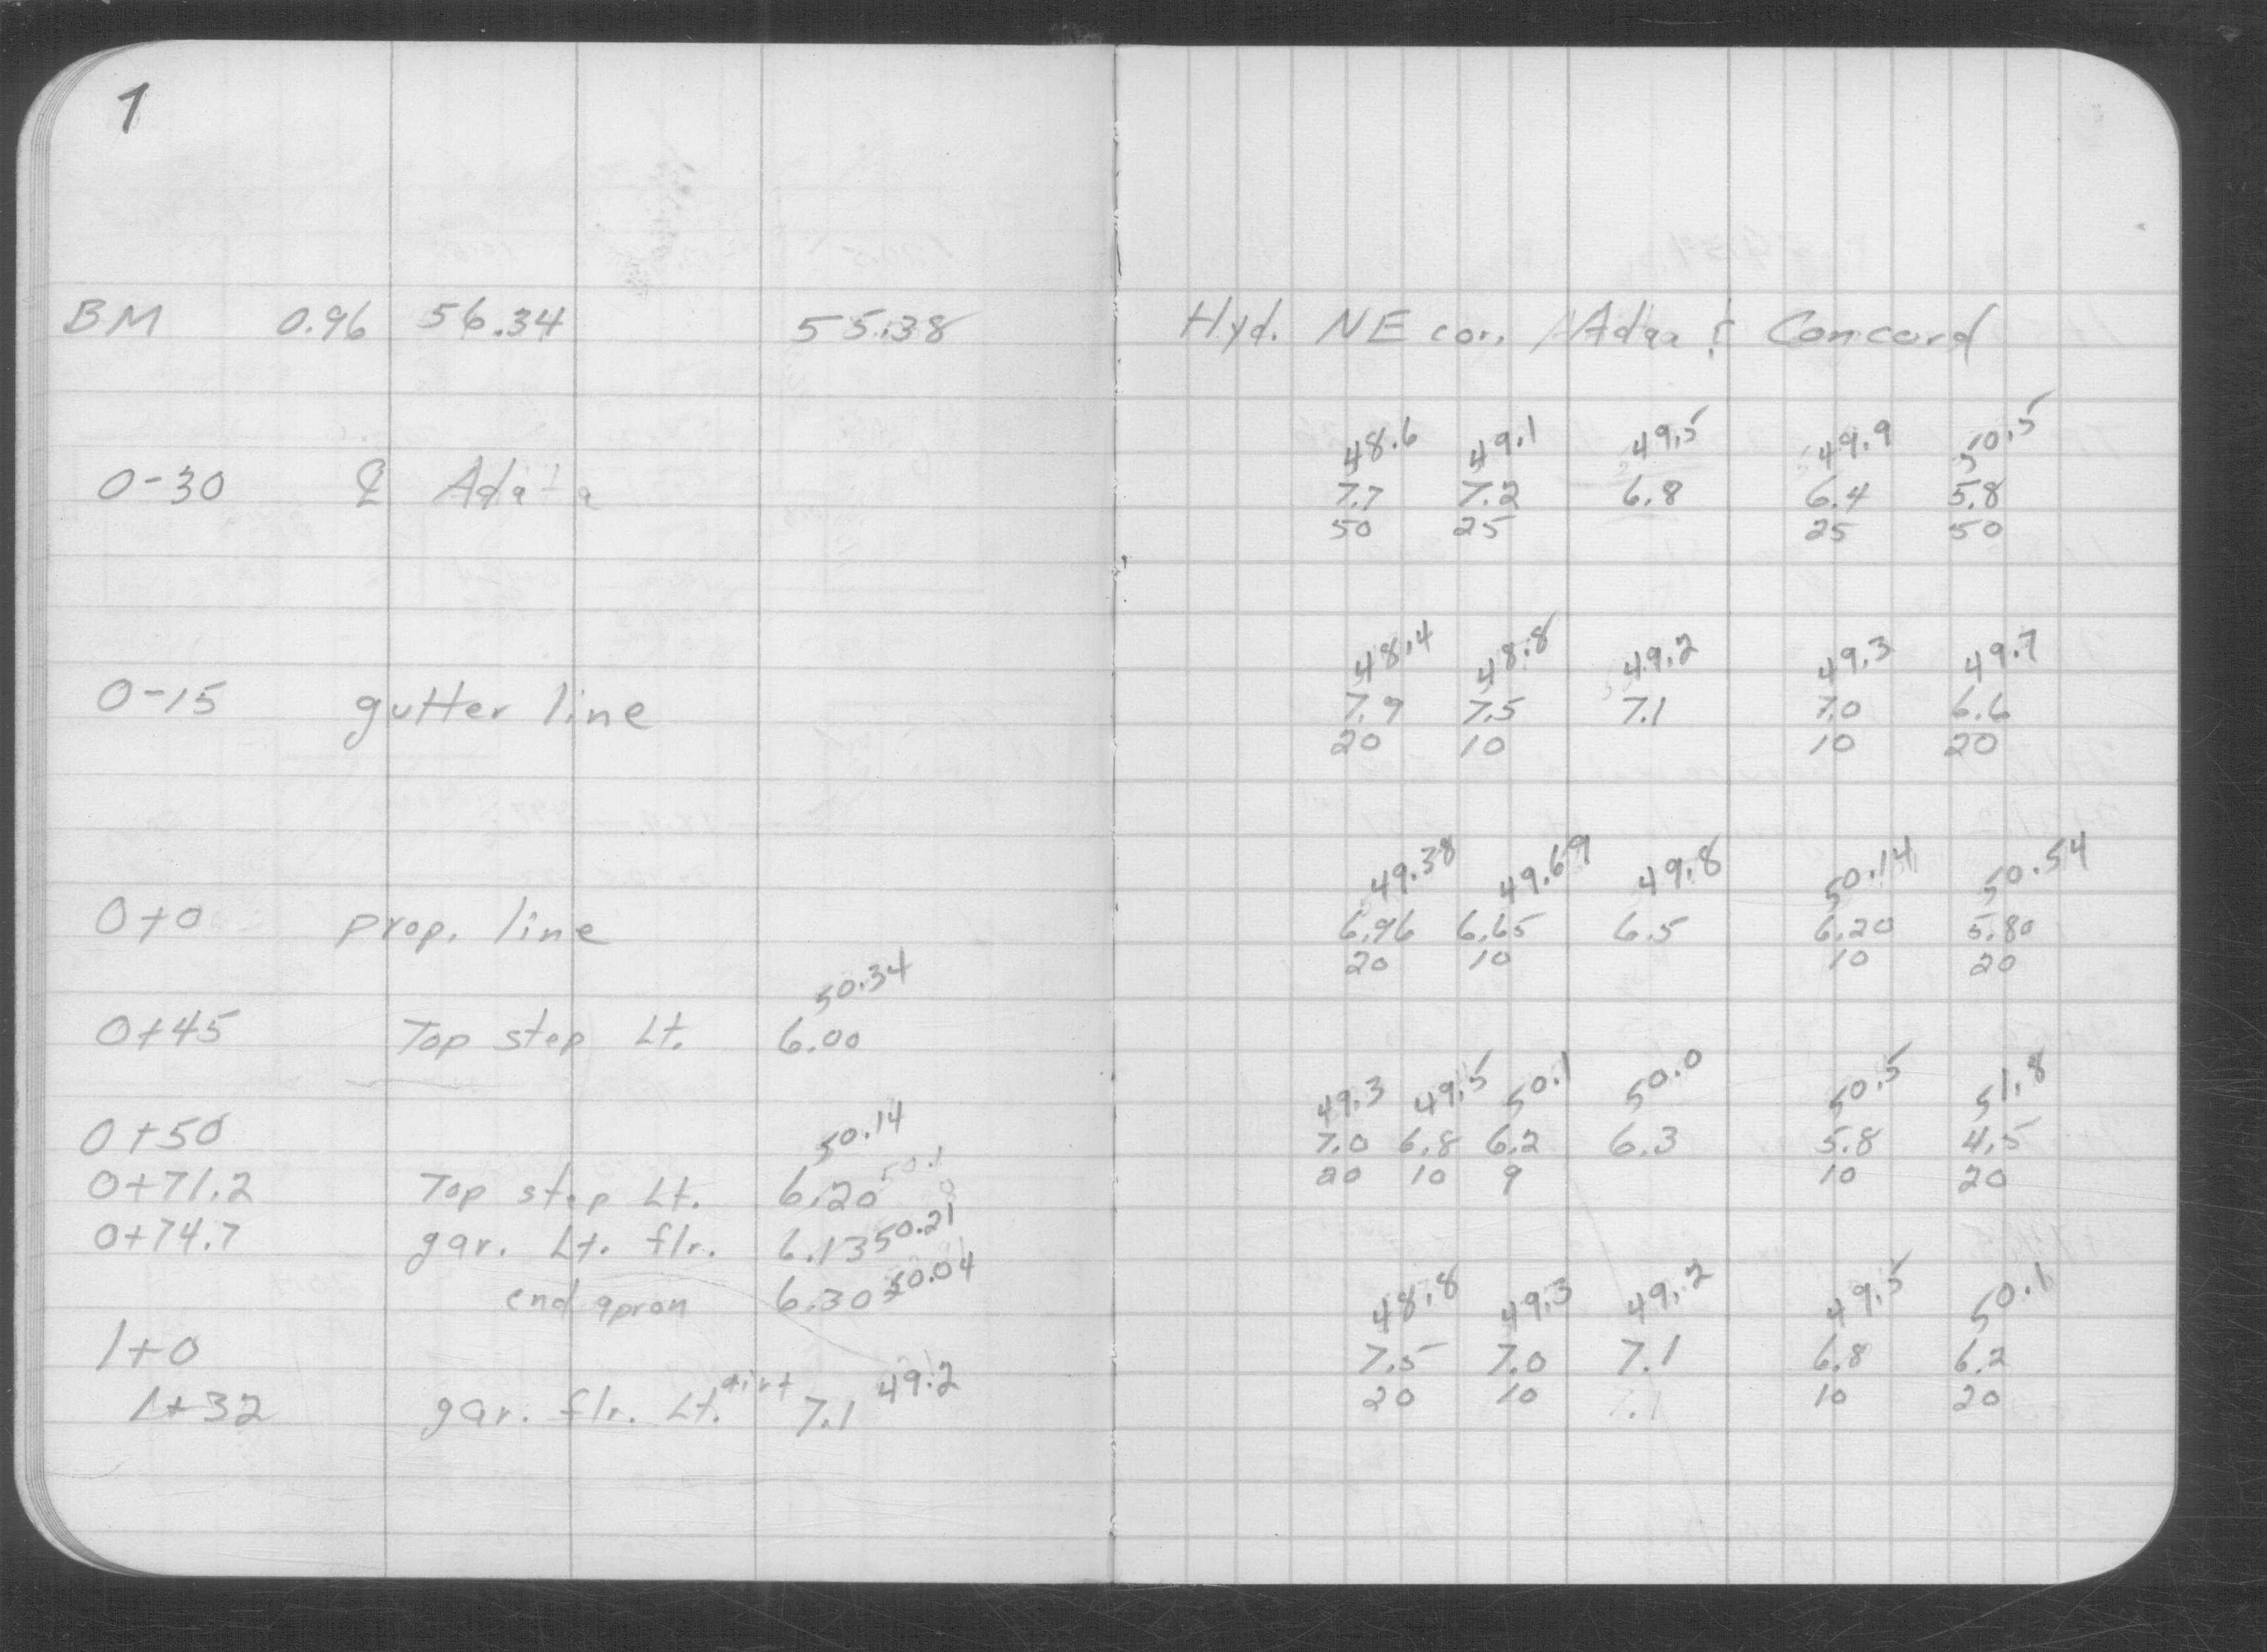 1
BM 0.96 56.34 55.38 Hyd. NE cor. & Concord
48.6 49.1 49.5 49.9 50.5
0-30 ℄ 7.7 7.2 6.8 6.4 5.8
50 25 25 50
48.4 48.8 49.2 49.3 49.7
0-15 gutter line 7.9 7.5 7.1 7.0 6.6
20 10 10 20
49.38 49.69 49.8 50.14 50.54
0+0 prop. line 6.96 6.65 6.5 6.20 5.80
20 10 10 20
50.34
0+45 Top step Lt. 6.00
49.3 49.5 50.1 50.0 50.5 51.8
0+50 7.0 6.8 6.2 6.3 5.8 4.5
20 10 9 10 20
50.14
0+71.2 Top step Lt. 6.20
0+74.7 gar. Lt. flr. 6.13 50.21
end apron 6.30 50.04
48.8 49.3 49.2 49.5 50.1
1+0 7.5 7.0 7.1 6.8 6.2
20 10 7.1 10 20
1+32 gar. flr. Lt. dirt 7.1 49.2